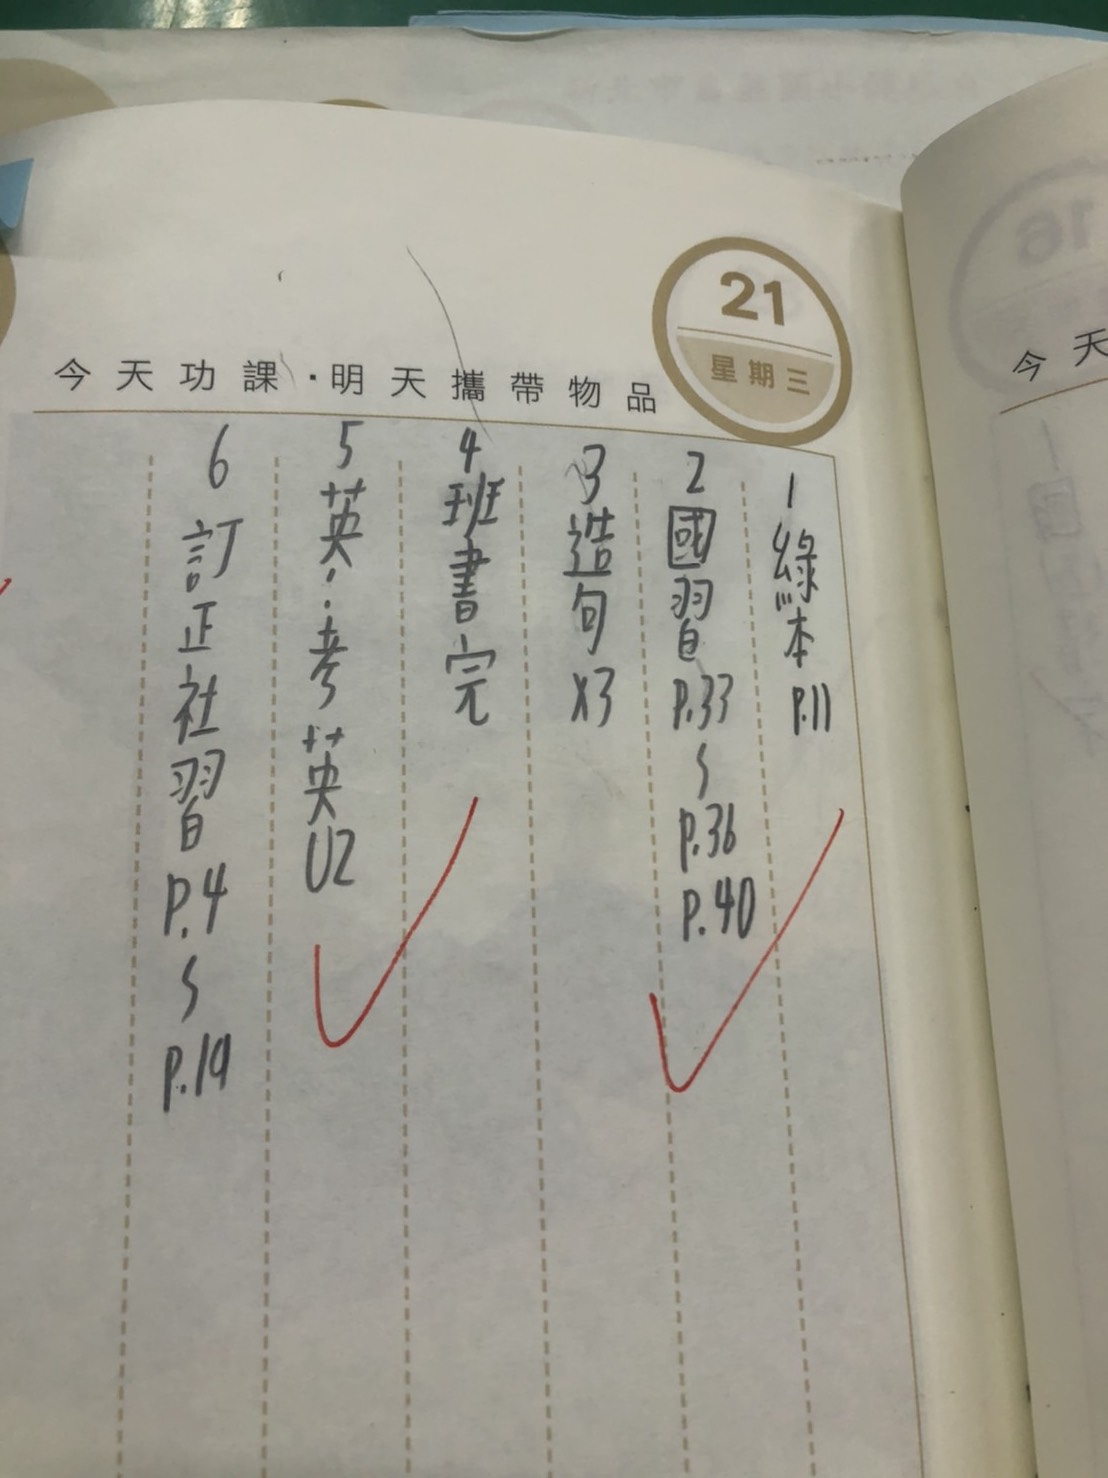 21
星期三
今天功課·明天攜帶物品
1 綠本 P.11
2 國習 P.33 ~ P.36 P.40
3 造句 x3
4 班書完
5 英:考英U2
6 訂正社習 P.4 ~ P.19
16
今天